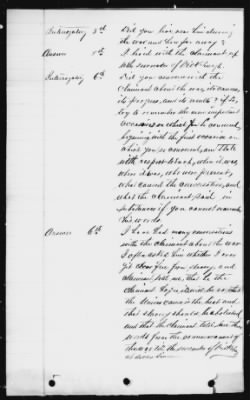 Interrogatory 5th Did you live near him during
the war and how far away?
Answer 5th I lived with the claimant up
to the surrender of Vicksburg.
Interrogatory 6th Did you converse with the
claimant about the war, its causes,
its progress, and its results? if so,
try to remember the more important
occasions on which you conversed,
beginning with the first occasion on
which you so conversed, and state
with respect to each, when it was,
where it was, who were present,
what caused the conversation, and
what the claimant said, in
substance if you cannot remember
his words.
Answer 6th I have had many conversations
with the claimant about the war
I often asked him whether I ever
get clear free from slavery, and
claimant told me, that he the
claimant
the Union cause is the best and
that slavery should be abolished
and that the claimant told me these
words from the commencement of
the war till the surrender of Vicksburg